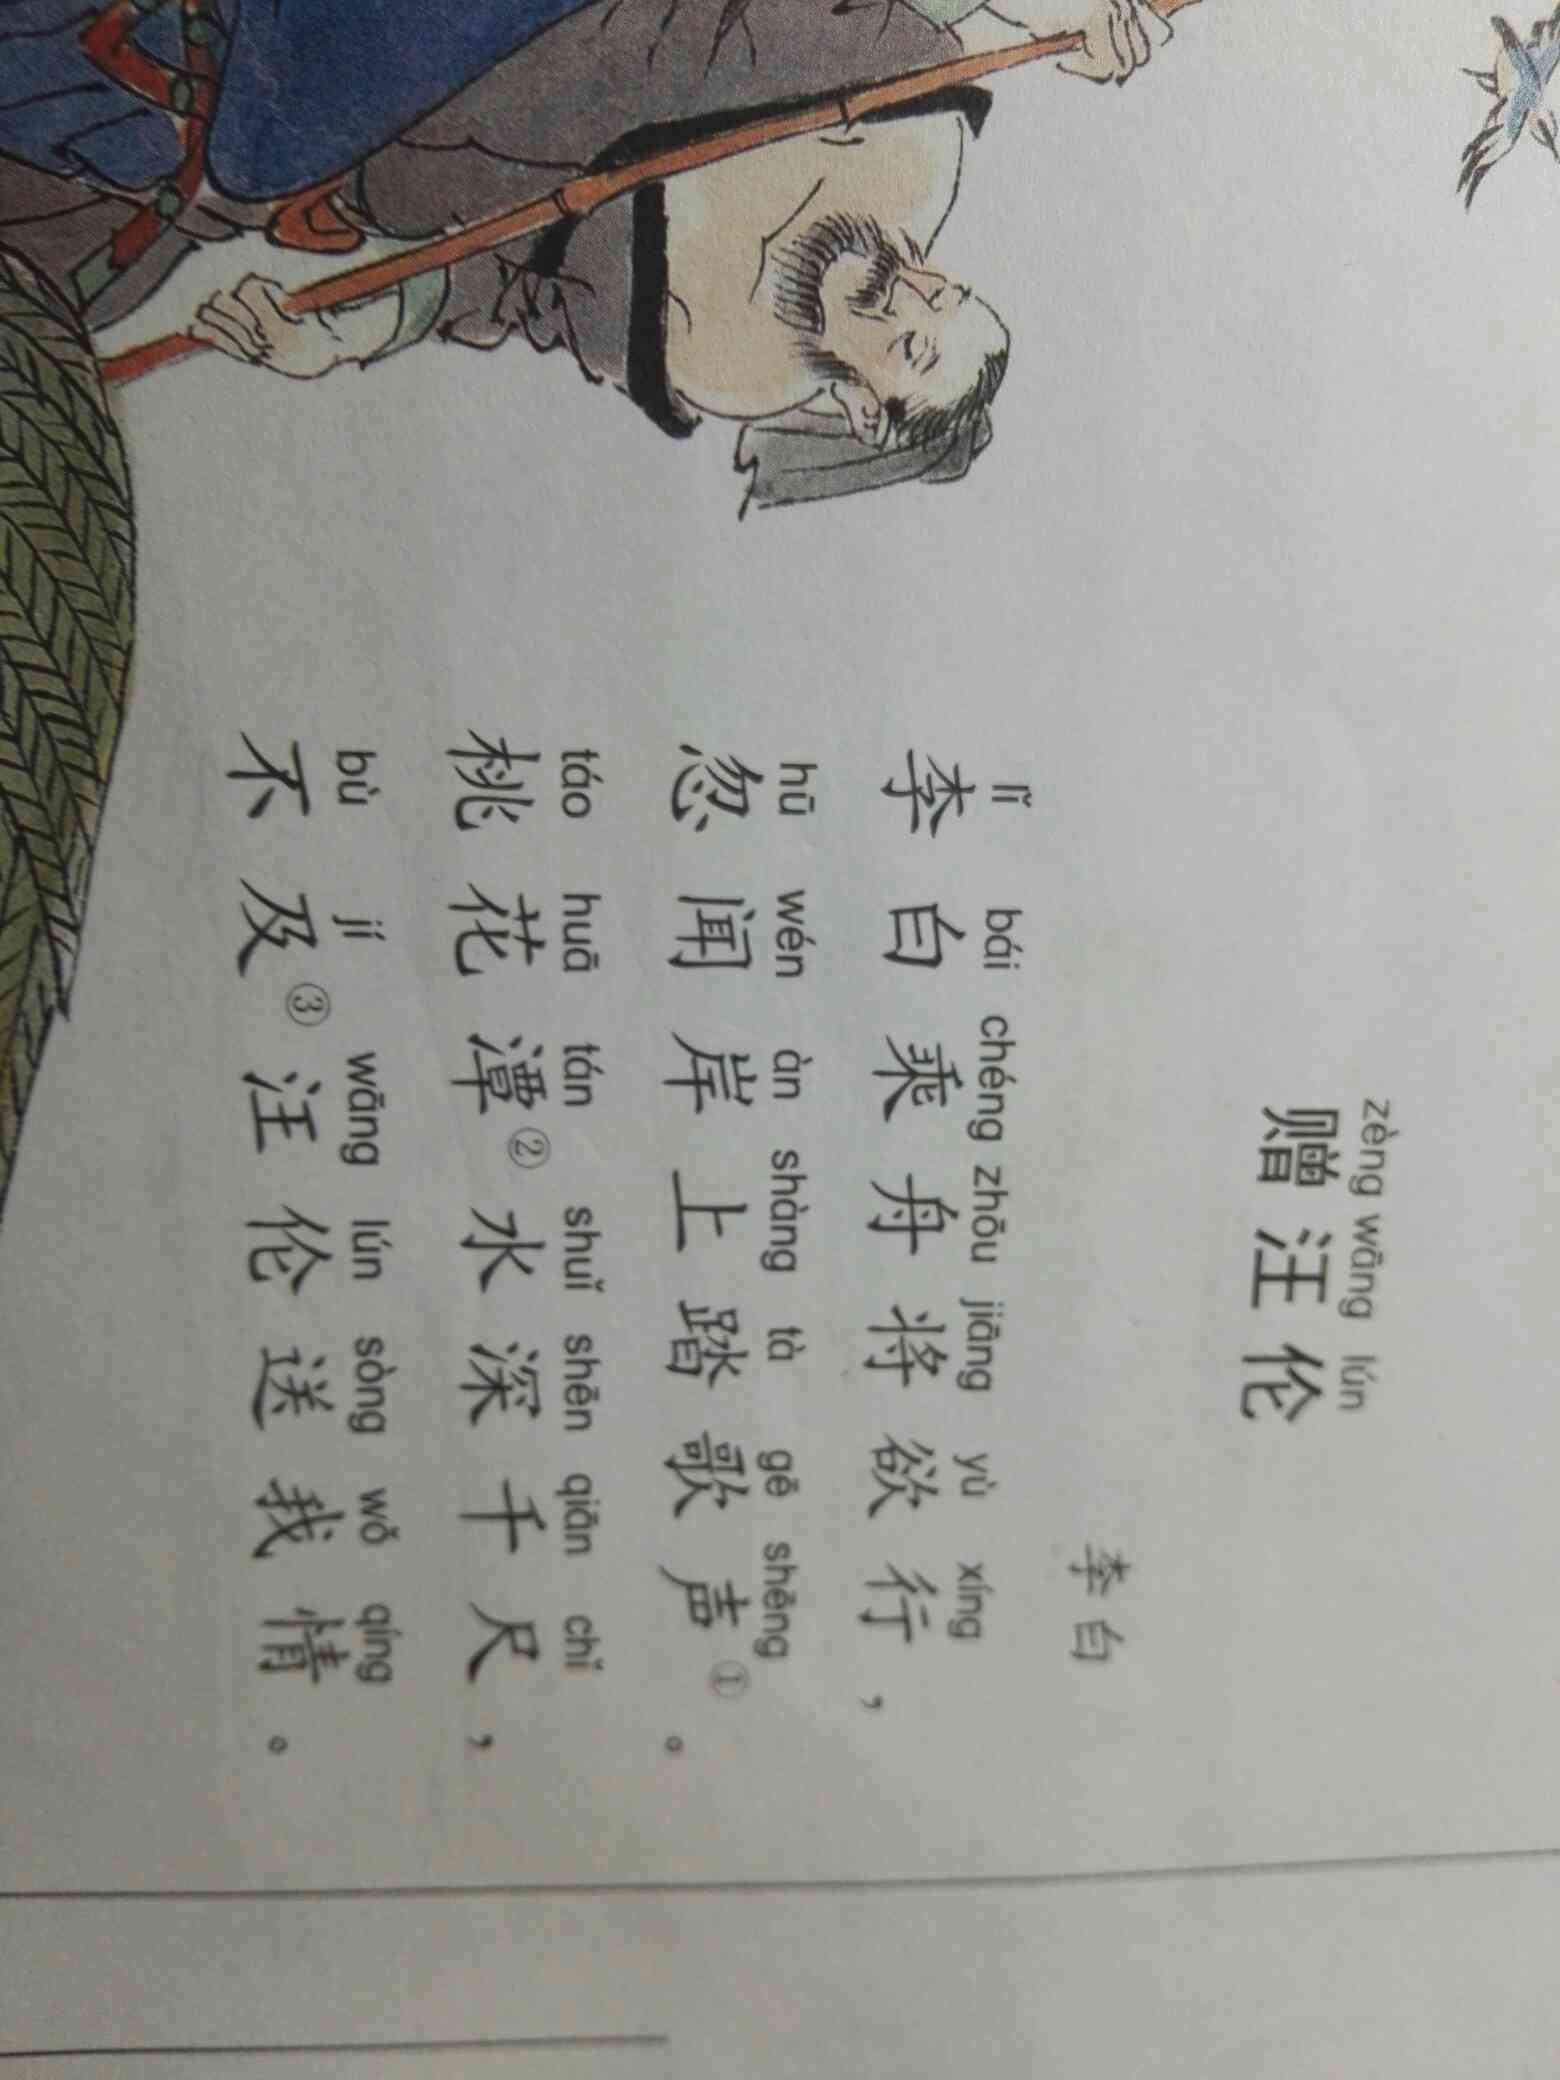 zèng wāng lún
赠汪伦
李白
lǐ bái chéng zhōu jiāng yù xíng
李白乘舟将欲行，
hū wén àn shàng tà gē shēng
忽闻岸上踏歌声①。
táo huā tán shuǐ shēn qiān chǐ
桃花潭②水深千尺，
bù jí wāng lún sòng wǒ qíng
不及③汪伦送我情。